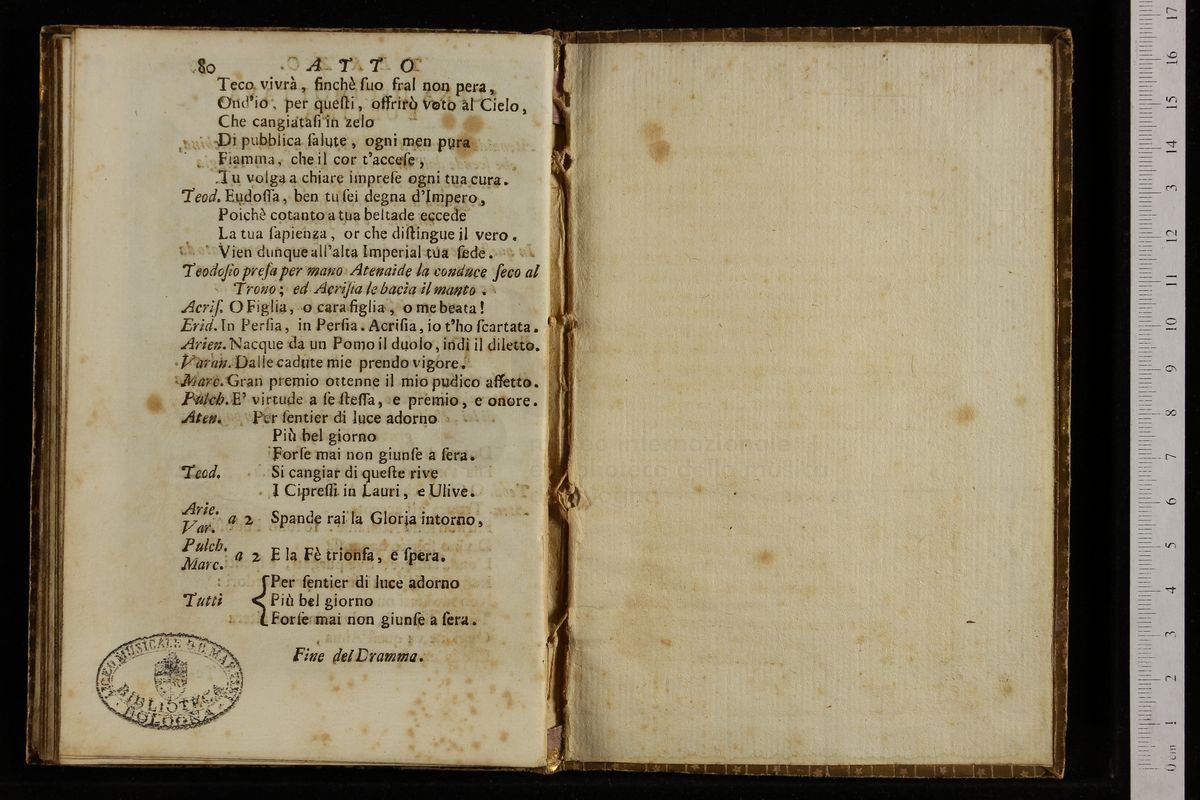 80 ATTO
Teco vivrà, finchè ſuo fral non pera,
Ond'io, per queſti, offrirò voto al Cielo,
Che cangiataſi in zelo
Di pubblica ſalute, ogni men pura
Fiamma, che il cor t'acceſe,
Tu volga a chiare impreſe ogni tua cura.
Teod. Eudoſſa, ben tu ſei degna d'Impero,
Poichè cotanto a tua beltade eccede
La tua ſapienza, or che diſtingue il vero.
Vien dunque all'alta Imperial tua ſede.
Teodoſio preſa per mano Atenaide la conduce ſeco al
Trono; ed Acriſia le bacia il manto.
Acriſ. O Figlia, o cara figlia, o me beata!
Erid. In Perſia, in Perſia. Acriſia, io t'ho ſcartata.
Arien. Nacque da un Pomo il duolo, indi il diletto.
Varan. Dalle cadute mie prendo vigore.
Marc. Gran premio ottenne il mio pudico affetto.
Pulch. E' virtude a ſe ſteſſa, e premio, e onore.
Aten. Per ſentier di luce adorno
Più bel giorno
Forſe mai non giunſe a ſera.
Teod. Si cangiar di queſte rive
I Cipreſſi in Lauri, e Ulive.
Arie.
Var. a 2 Spande rai la Gloria intorno,
Pulch.
Marc. a 2 E la Fè trionfa, e ſpera.
Per ſentier di luce adorno
Tutti Più bel giorno
Forſe mai non giunſe a ſera.
Fine del Dramma.
LICEO MUSICALE G.B. MARTINI
BIBLIOTECA
BOLOGNA
museo internazionale
e biblioteca della musica
0 cm 1 2 3 4 5 6 7 8 9 10 11 12 13 14 15 16 17